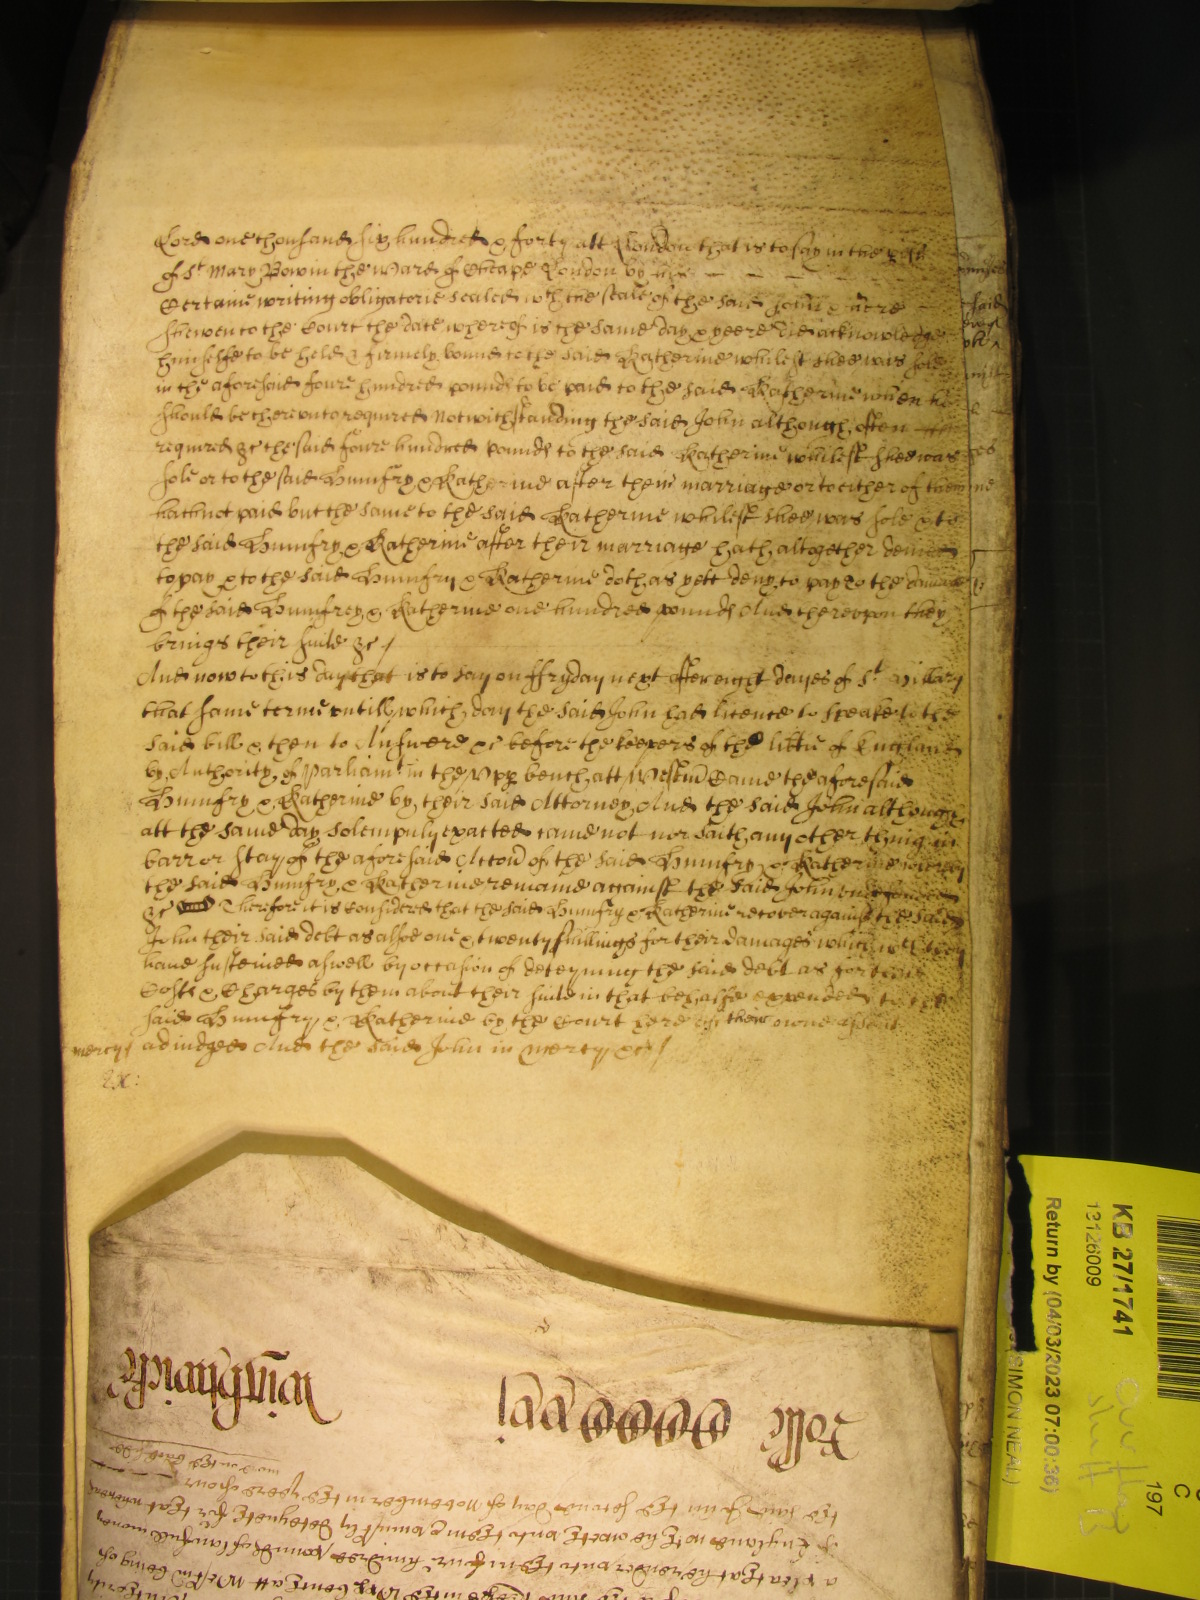 Lord one thousand six hundred & forty att London that is to say in the
of St Mary Bow in the Ward of Cheape London by his
Certaine writing obligatorie sealed wth the seale of the said John & here
shewen to the Court the date whereof is the same day & yeere did acknowledge
himselfe to be held & firmely bound to the said Katherine whilest shee was sole
in the aforesaid foure hundred pounds to be paid to the said Katherine when he
should be thereunto required Notwithstanding the said John although often
required &c the said foure hundred pounds to the said Katherine whilest shee was
sole or to the said Humfry & Katherine after their marriage or to either of them
hath not paid but the same to the said Katherine whilest shee was sole & to
the said Humfry & Katherine after their marriage hath altogether denied
to pay & to the said Humfry & Katherine doth as yett deny to pay to the damage
of the said Humfrey & Katherine one hundred pounds And thereupon they
brings their suite &c
And now to this day that is to say on ffryday next after eight dayes of St Hillary
that same terme untill which day the said John had licence to speake to the
said bill & then to Answere &c before the keepers of the libtie of England
by Authority of Parliamt in the Upp bench att Westm Came the aforesaid
Humfry & Katherine by their said Attorney And the said John although
att the same day solempnly exacted came not nor saith any other thing in
barr or stay of the aforesaid Accon of the said Humfry & Katherine whereby
the said Humfry & Katherine remaine against the said John undefended
&c Therefore it is Considered that the said Humfry & Katherine recover against the said
John their said debt as alsoe one & twenty shillings for their damages which they
have susteined aswell by occasion of deteyning the said debt as for their
Costs & Charges by them about their suite in that behalfe expended to the
said Humfry & Katherine by the Court here their owne assent
mercy adiudged And the said John in mercy &c
Ex:
Rolle
Wintwiche
the said John the second day of November in the yeere of our
of England wch he oweth unto them & uniustly deteyneth for that whereas
a plea that he render unto them foure hundred pounds of lawfull money
Upp bench att Westm being
KB 27/1741
13126009
Return by (04/03/2023 07:00:36)
SIMON NEAL)
197
C